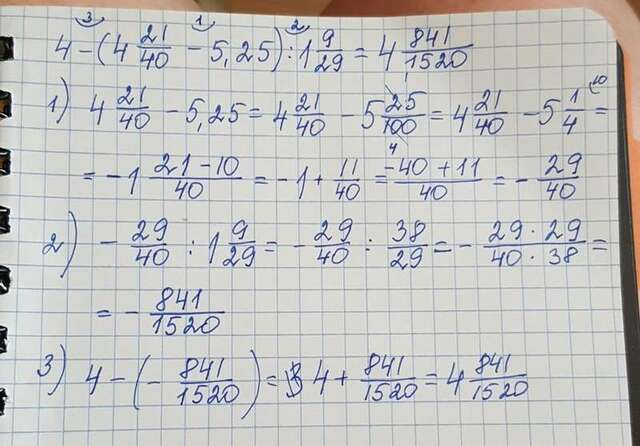 3 1 2
4 - (4 21/40 - 5,25) : 1 9/29 = 4 841/1520
1) 4 21/40 - 5,25 = 4 21/40 - 5 25/100 = 4 21/40 - 5 1/4 =
= -1 21-10/40 = -1 + 11/40 = -40+11/40 = - 29/40
2) - 29/40 : 1 9/29 = - 29/40 : 38/29 = - 29·29/40·38 =
= - 841/1520
3) 4 - (- 841/1520) = 4 + 841/1520 = 4 841/1520